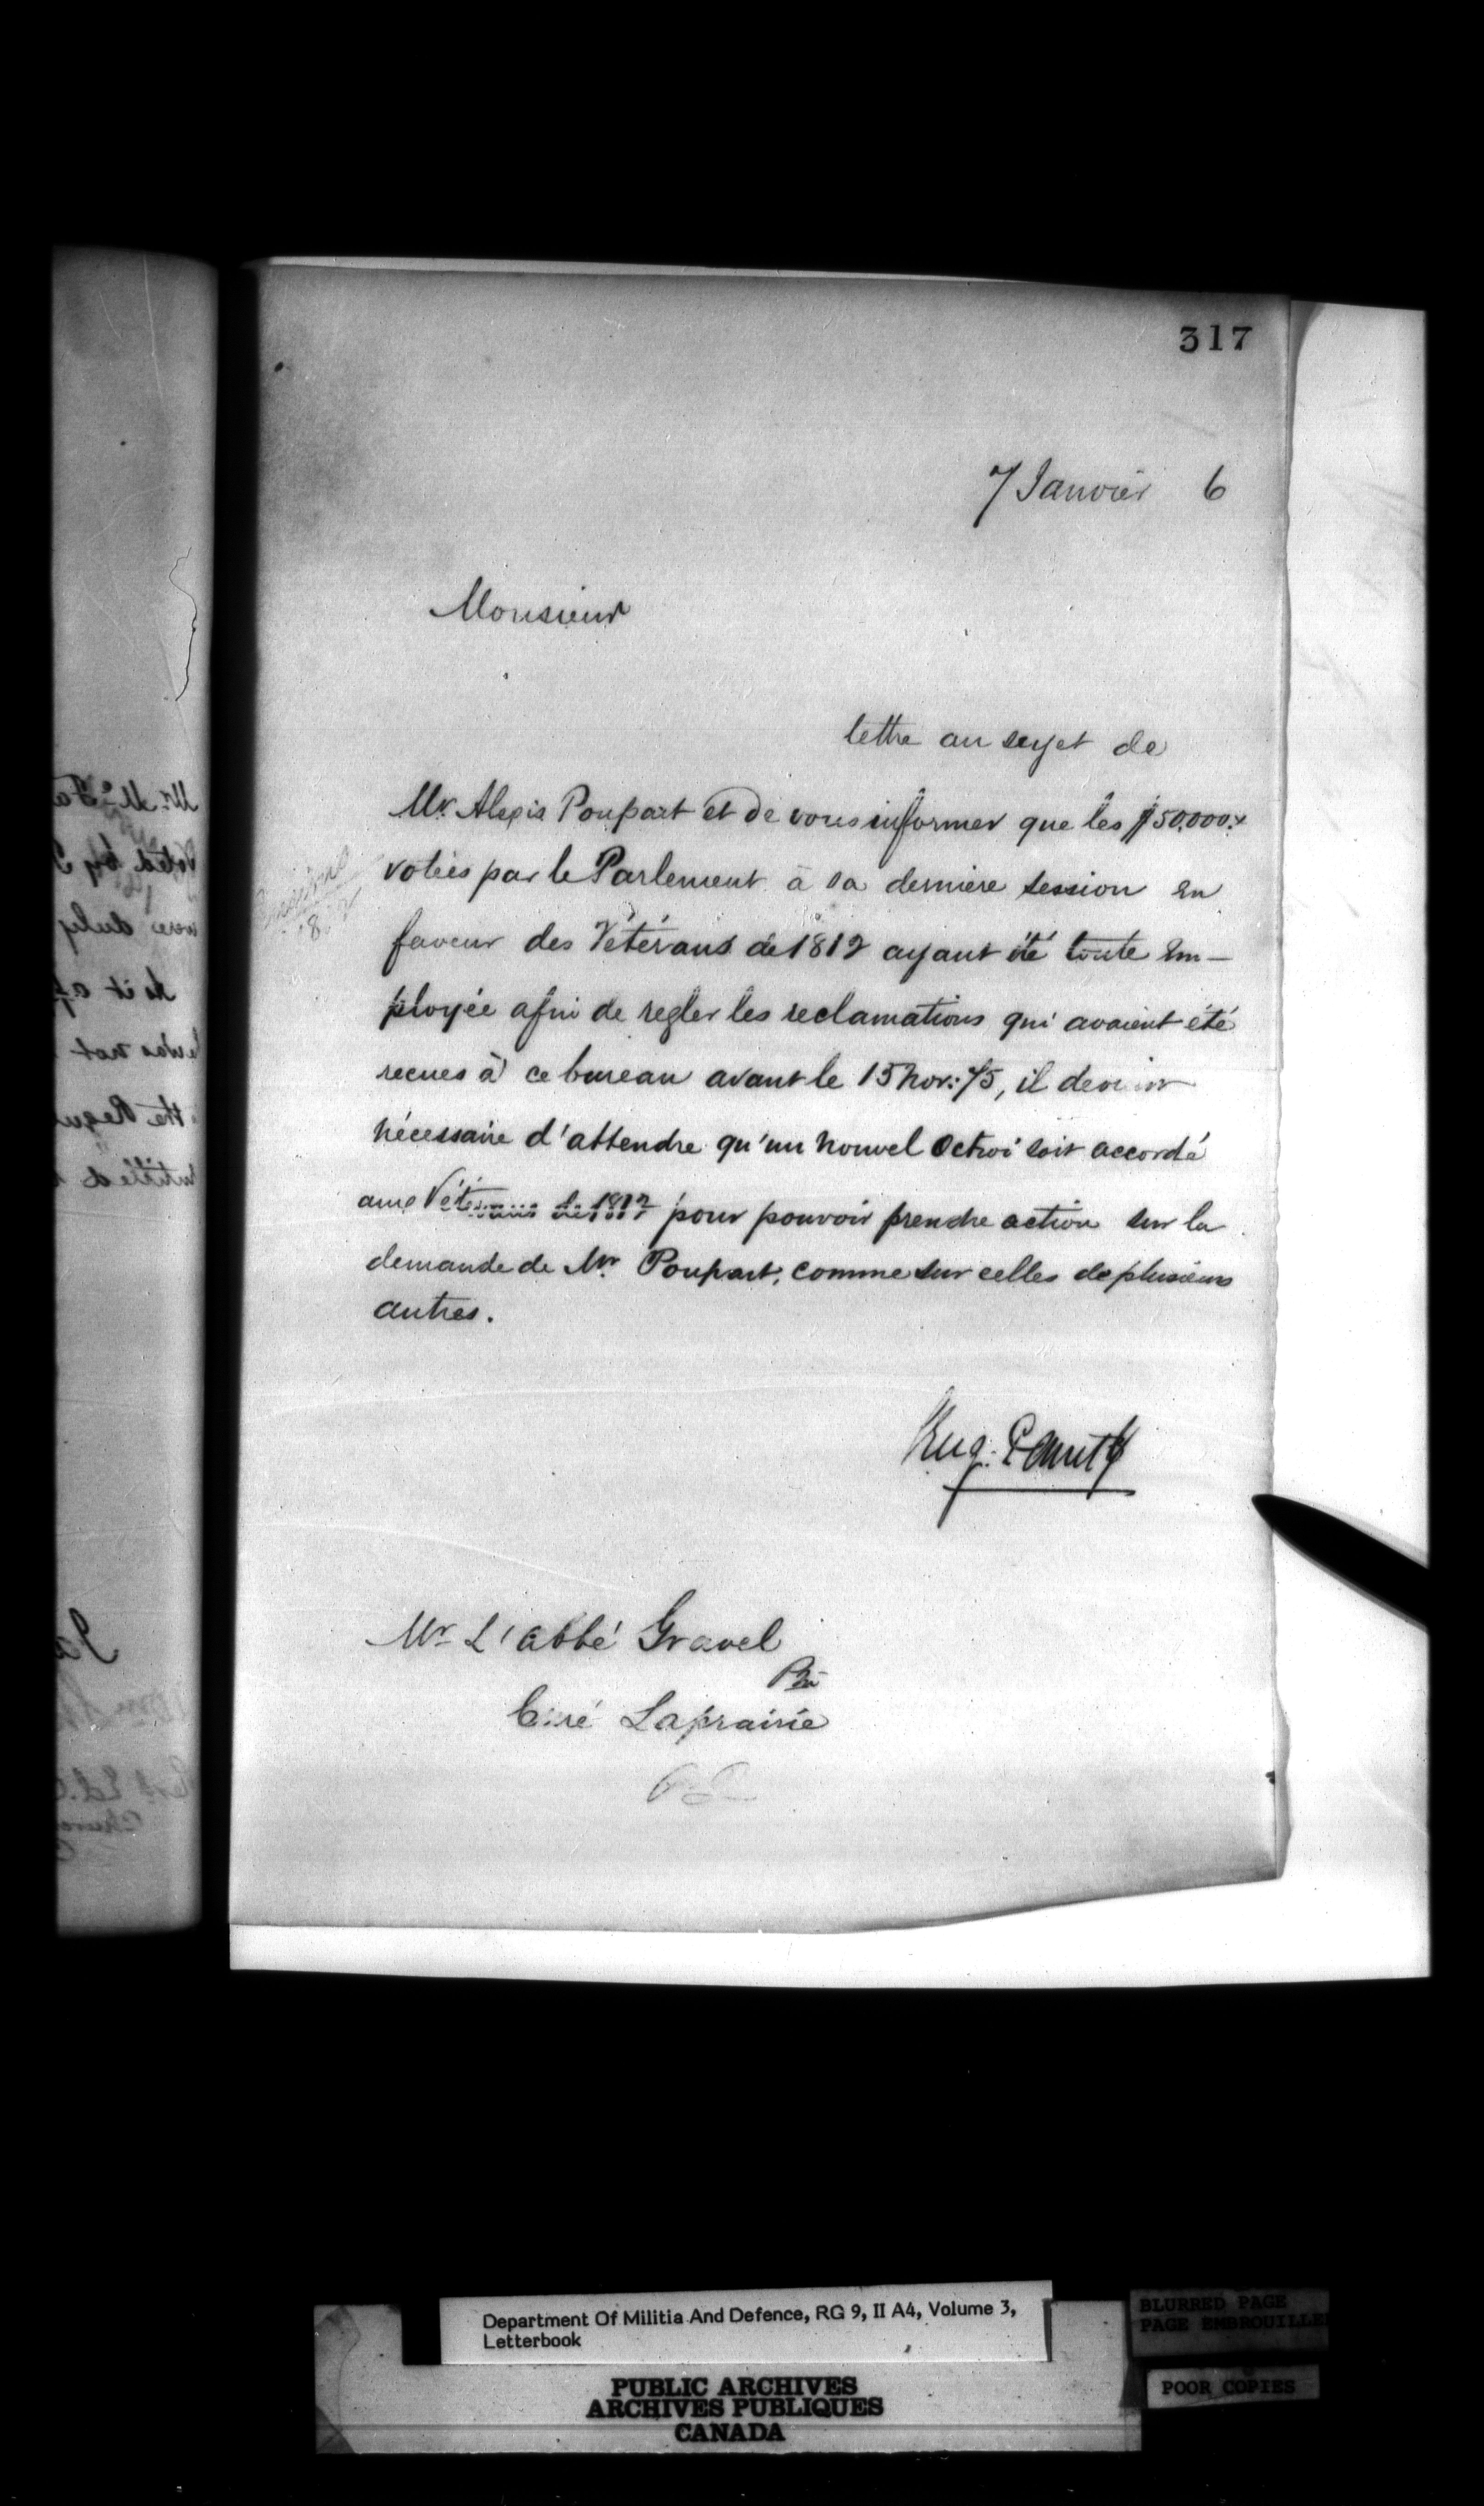 317
7 Janvier 6
Monsieur
lettre au sujet de
Mr. Alexis Poupart et de vous informer que les $50,000.x
votées par le Parlement à sa derniere session en
faveur des Vétérans de 1812 ayant été toute em-
ployée afin de regler les reclamations qui avaient été
recues à ce bureau avant le 15 Nov: 75, il devient
nécessaire d'attendre qu'un nouvel Octroi soit accordé
aux Vétérans de 1812 pour pouvoir prendre action sur la
demande de Mr Poupart, comme sur celles de plusieurs
autres.
Mr L'abbé Gravel
Ptre
Curé Laprairie
Department Of Militia And Defence, RG 9, II A4, Volume 3,
Letterbook
BLURRED PAGE
PAGE EMBROUILLE
POOR COPIES
PUBLIC ARCHIVES
ARCHIVES PUBLIQUES
CANADA